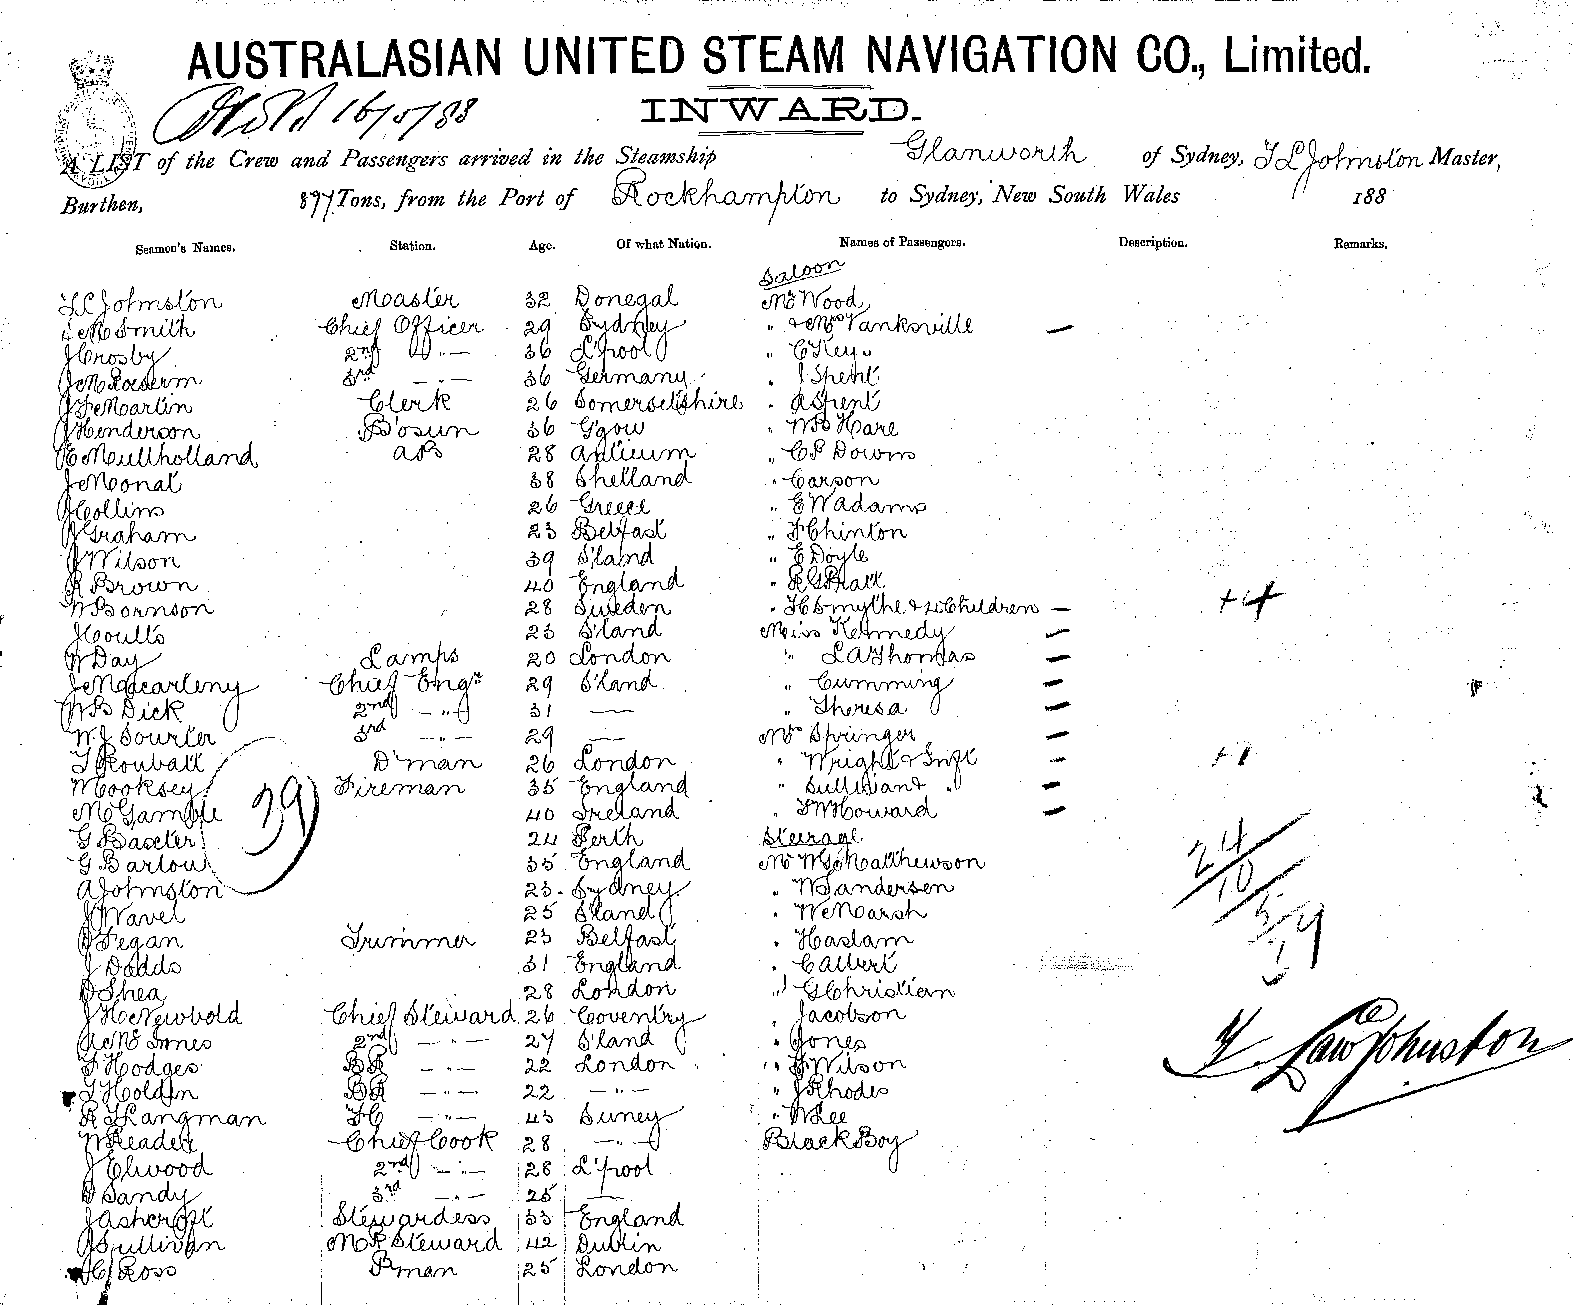 AUSTRALASIAN UNITED STEAM NAVIGATION CO., Limited.
16/5/88
INWARD.
A LIST of the Crew and Passengers arrived in the Steamship Glanworth of Sydney, T L Johnston Master,
Burthen, 897 Tons, from the Port of Rockhampton to Sydney, New South Wales 188
Seamen's Names. Station. Age. Of what Nation. Names of Passengers. Description. Remarks.
Saloon
T L Johnston Master 32 Donegal Mr Wood
M Smith Chief Officer 29 Sydney " & Mrs Tanksville —
J Crosby 2nd " — 36 L'pool " C Key
3rd — " — 36 Germany " J Spent
J F Martin Clerk 26 Somersetshire " A Spent
J Henderson B'osun 36 G'gow " Hare
E Mullholland AB 28 " C P Downs
J Monat 38 Shetland " Carson
J Collins 26 Greece " E W Adams
J Graham 23 Belfast " F Chinton
J Wilson 39 S'land " E Doyle
R Brown 40 England " R G Pratt
W Bornson 28 Sweden " H Smythe & 4 Children — +4
J Coults 23 S'land Miss Kennedy —
W Day Lamps 20 London " L A Thomas —
Chief Engr 29 S'land " Cumming —
W B Dick 2nd — " — 31 — " Theresa —
W J Sourter 3rd — " — 29 — Mrs Springer —
T Rouvall D'man 26 London " Wright & Inft — +1
M Cooksey Fireman 35 England " Sullivan & " —
M Gample 40 Ireland " F W Howard —
39
G Baxter 24 Perth Steerage
G Barlow 35 England Mr W G Matthewson
24
A Johnston 23 Sydney " W Sandersen
10
J Wavel 25 S'land " W Marsh
5
J Fegan Trimmer 23 Belfast " Haslam
J Dodds 31 England " Calvert
D Shea 28 London " G Christian
J H Newbold Chief Steward 26 Coventry " Jacobson
A McInnes 2nd — " — 27 S'land " Jones
F Law Johnston
F Hodges BR — " — 22 London " F Wilson
T Holden BR — " — 22 — " — " J Rhodes
R T Langman FC — " — 43 Surrey " W Lee
W Reader Chief Cook 28 — " — Black Boy
J Elwood 2nd — " — 28 L'pool
D Sandy 3rd — " — 25 —
J Ashcroft Stewardess 33 England
J Sullivan M R Steward 42 Dublin
H C Ross P man 25 London